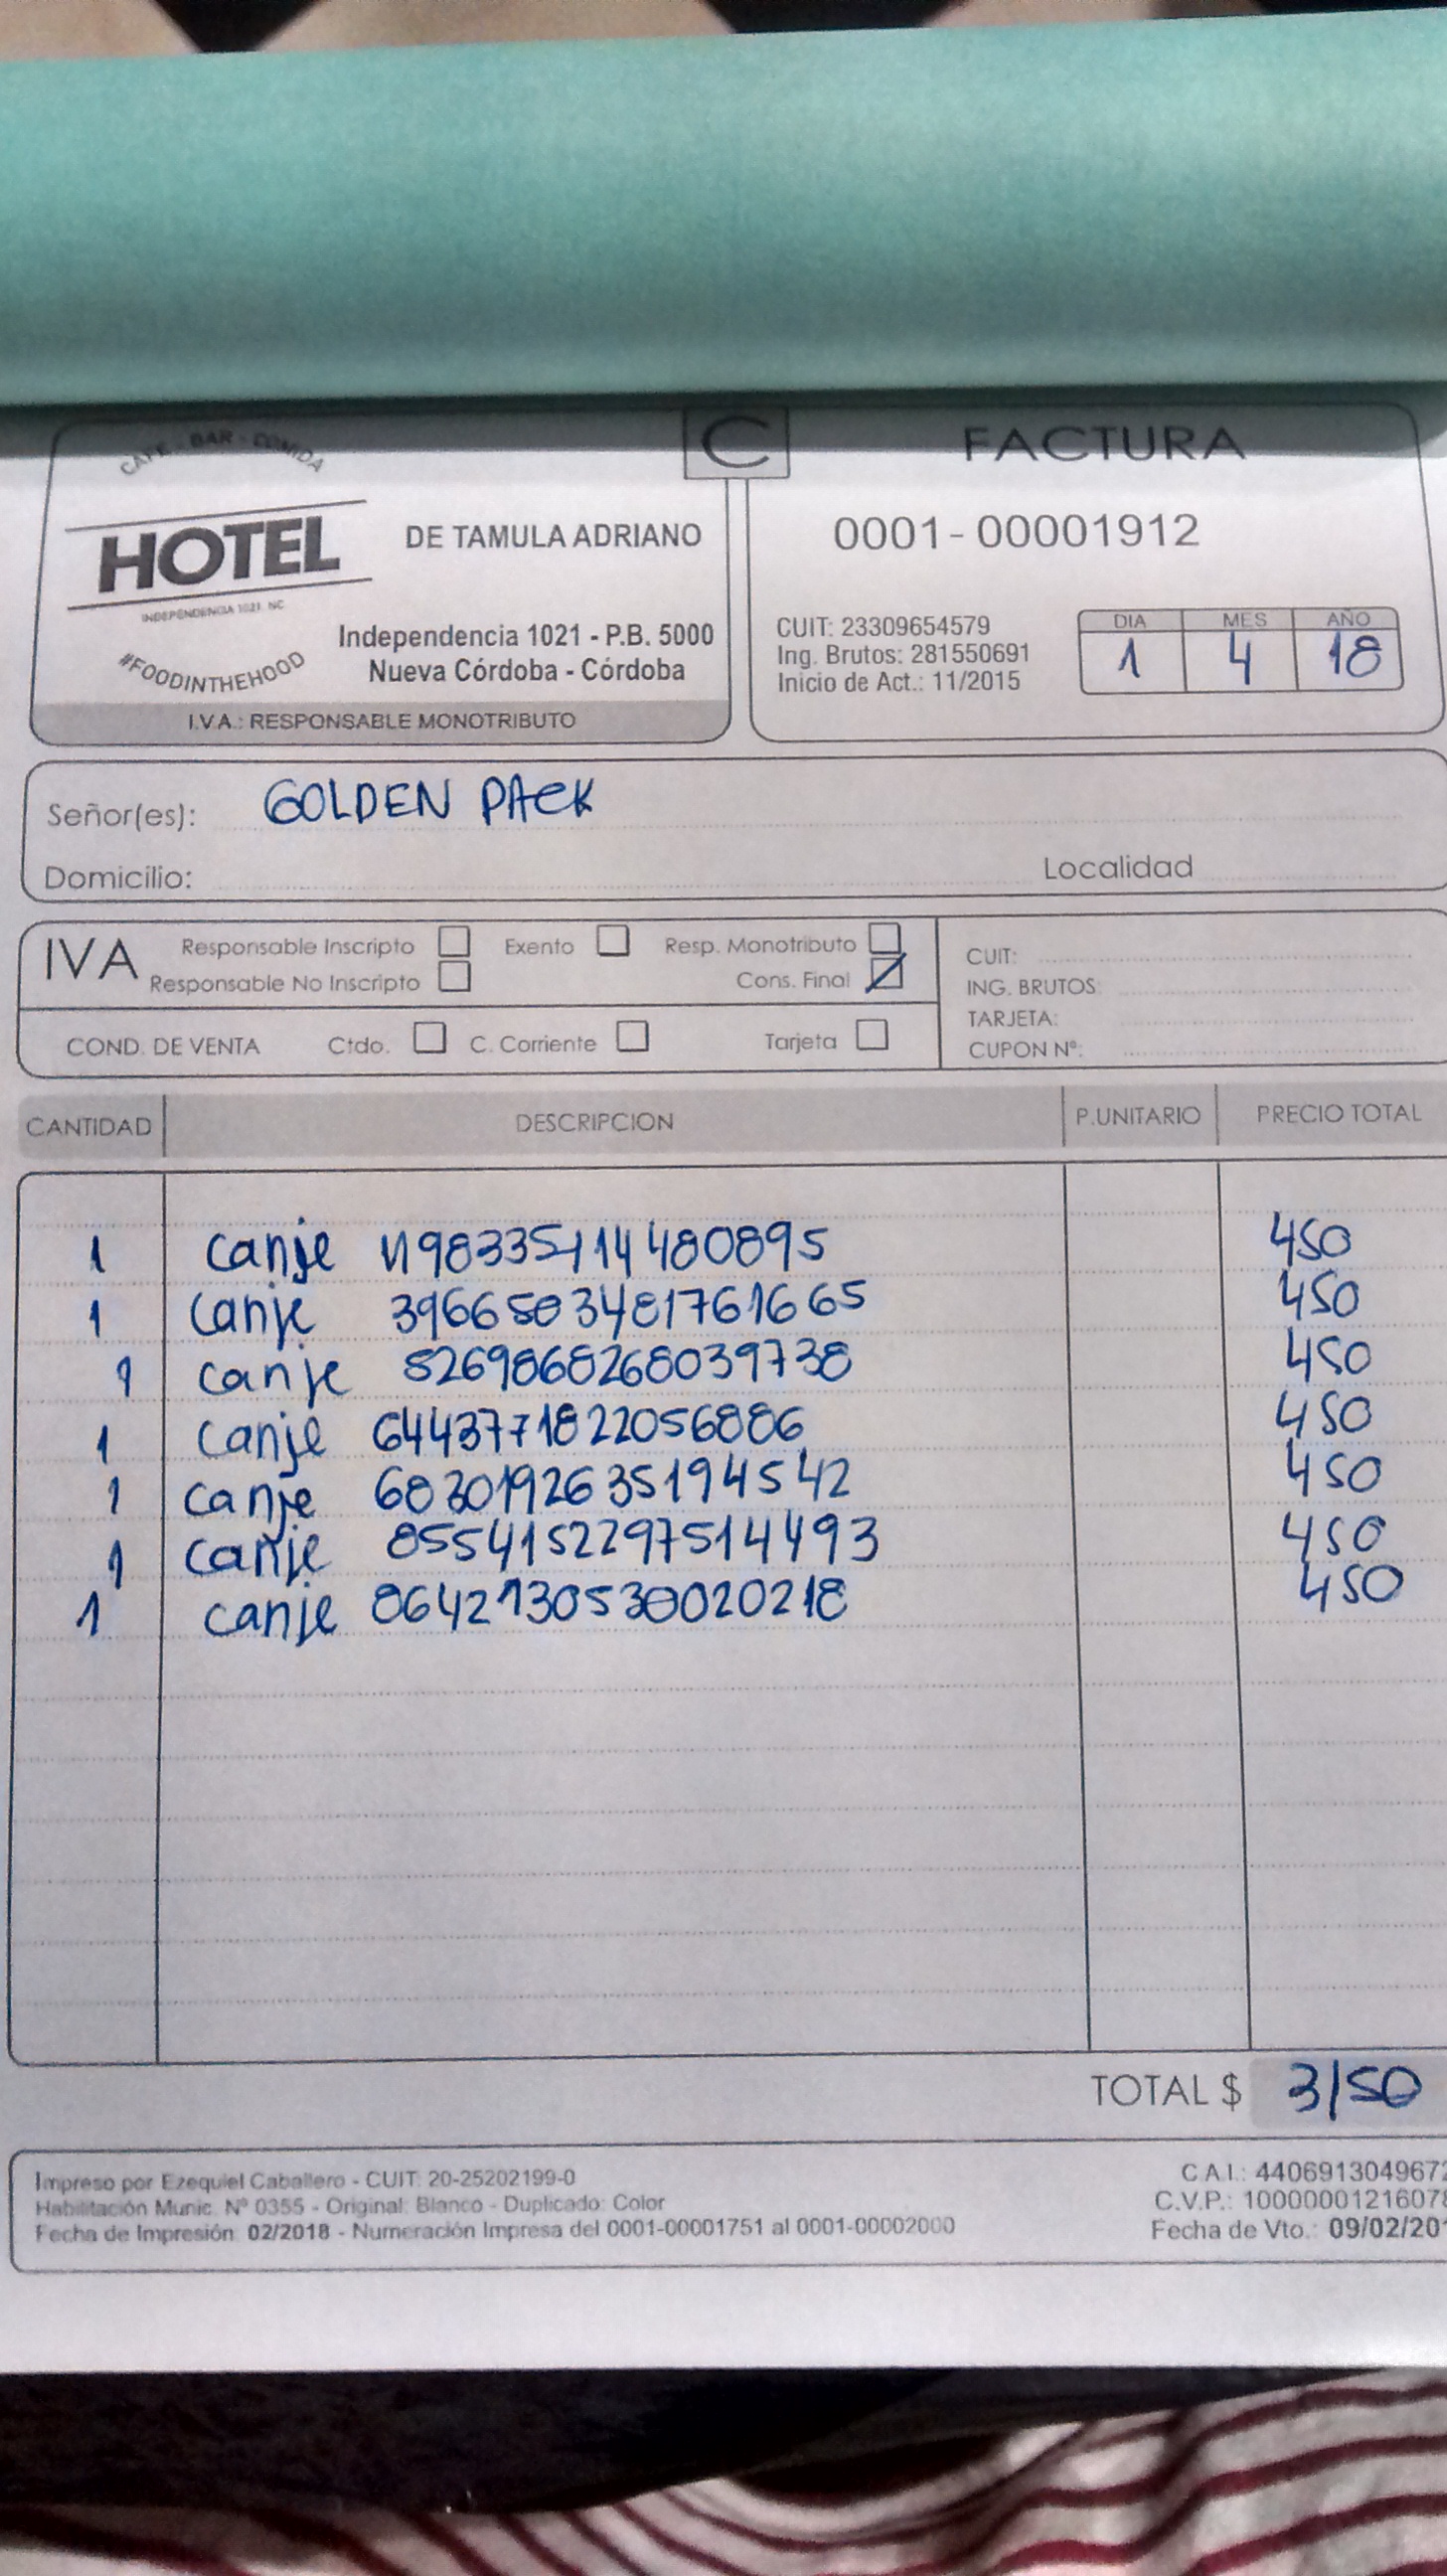 CAFE - BAR - COMIDA
HOTEL
INDEPENDENCIA 1021. NC
#FOODINTHEHOOD
DE TAMULA ADRIANO
Independencia 1021 - P.B. 5000
Nueva Córdoba - Córdoba
I.V.A.: RESPONSABLE MONOTRIBUTO
C
FACTURA
0001-00001912
CUIT: 23309654579
Ing. Brutos: 281550691
Inicio de Act.: 11/2015
DIA MES AÑO
1 4 18
Señor(es): GOLDEN PACK
Domicilio: Localidad
IVA Responsable Inscripto Exento Resp. Monotributo
Responsable No Inscripto Cons. Final
COND. DE VENTA Ctdo. C. Corriente Tarjeta
CUIT:
ING. BRUTOS:
TARJETA:
CUPON Nº:
CANTIDAD DESCRIPCION P.UNITARIO PRECIO TOTAL
1 canje 450
1 canje 3966503481761665 450
1 canje 5269868268039738 450
1 canje 6443771822056886 450
1 canje 6830192635194542 450
1 canje 8554152297514493 450
1 canje 450
TOTAL $ 3150
Impreso por Ezequiel Caballero - CUIT: 20-25202199-0
Habilitación Munic. Nº 0355 - Original: Blanco - Duplicado: Color
Fecha de Impresión: 02/2018 - Numeración Impresa del 0001-00001751 al 0001-00002000
C.A.I.: 4406913049672
C.V.P.: 10000001216078
Fecha de Vto.: 09/02/201